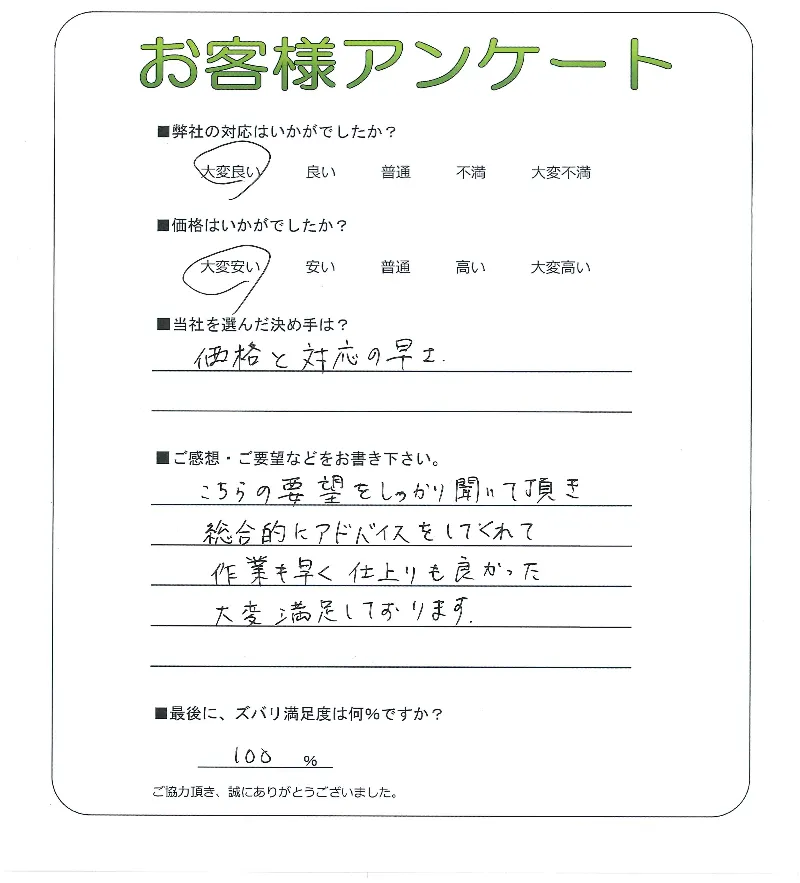 お客様アンケート
■弊社の対応はいかがでしたか？
大変良い 良い 普通 不満 大変不満
■価格はいかがでしたか？
大変安い 安い 普通 高い 大変高い
■当社を選んだ決め手は？
価格と対応の早さ.
■ご感想・ご要望などをお書き下さい。
こちらの要望をしっかり聞いて頂き
総合的にアドバイスをしてくれて
作業も早く仕上りも良かった
大変満足しております.
■最後に、ズバリ満足度は何%ですか？
100 %
ご協力頂き、誠にありがとうございました。